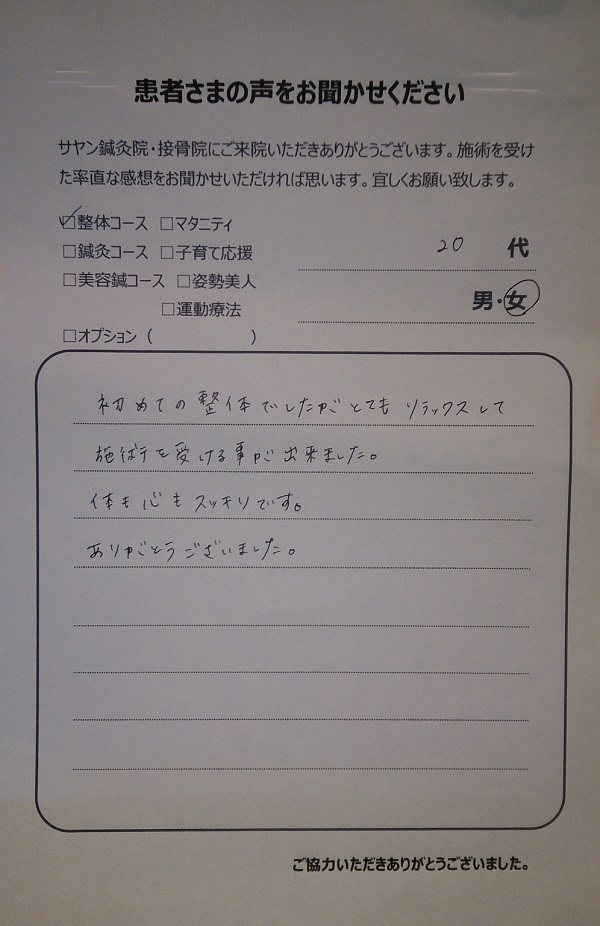 患者さまの声をお聞かせください
サヤン鍼灸院・接骨院にご来院いただきありがとうございます。施術を受け
た率直な感想をお聞かせいただければ思います。宜しくお願い致します。
☑整体コース □マタニティ
□鍼灸コース □子育て応援
20 代
□美容鍼コース □姿勢美人
男・女
□運動療法
□オプション（ ）
初めての整体でしたがとてもリラックスして
施術を受ける事が出来ました。
体も心もスッキリです。
ありがとうございました。
ご協力いただきありがとうございました。